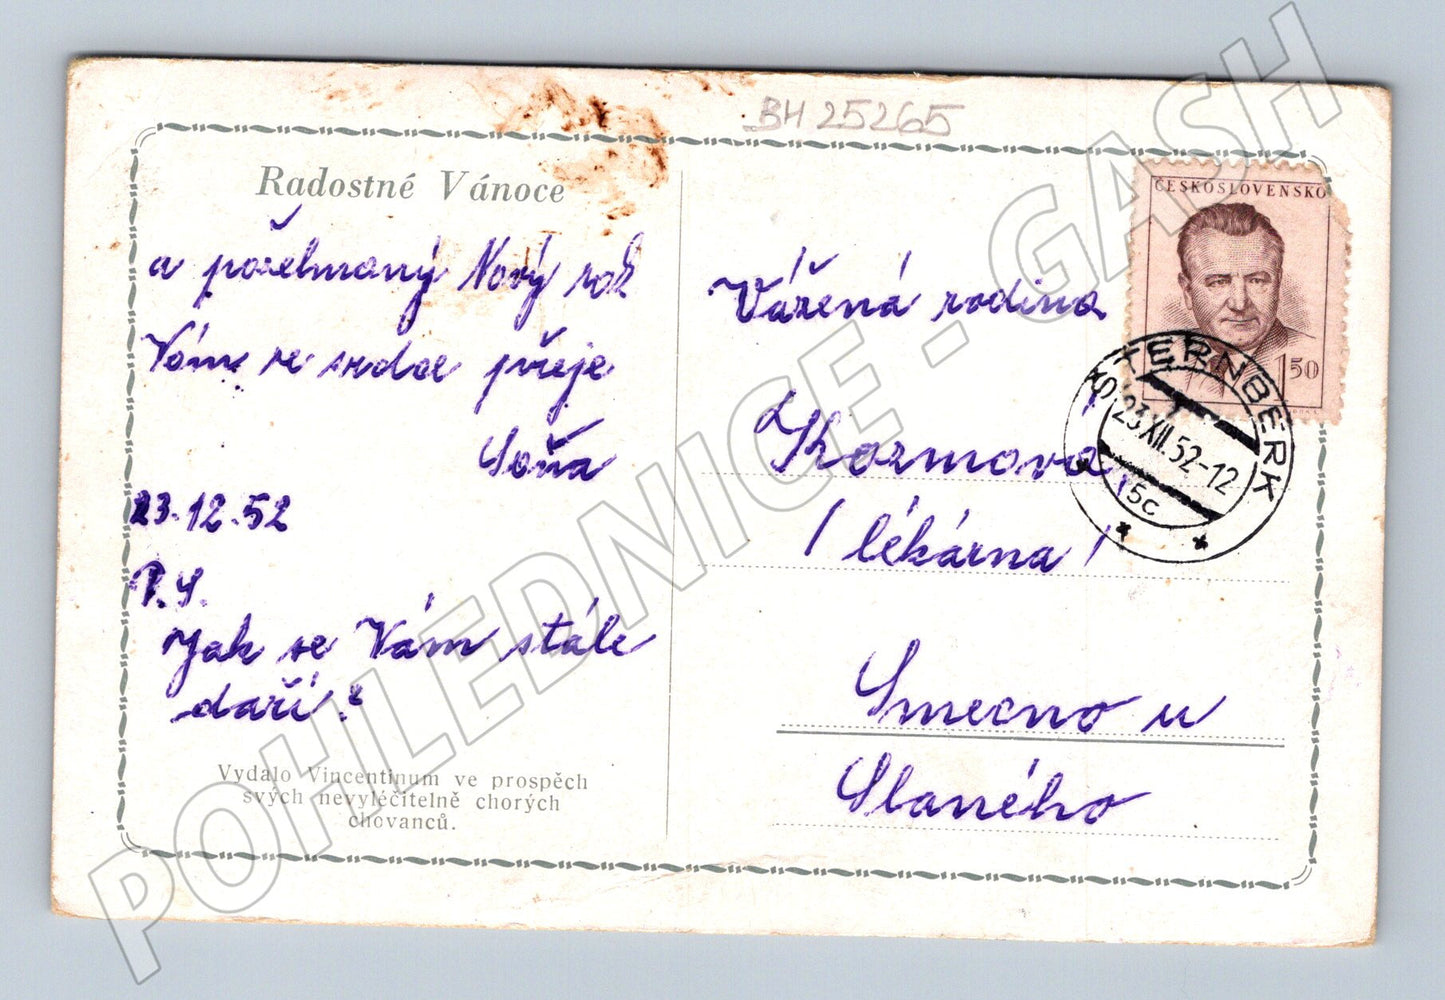 BH 25265
Radostné Vánoce
a požehnaný Nový rok
Vám ze srdce přeje
Soňa
23.12.52
P.S.
Jak se Vám stále
daří?
Vydalo Vincentinum ve prospěch
svých nevyléčitelně chorých
chovanců.
ČESKOSLOVENSKO
1.50
ŠTERNBERK
23.XII.52-12
5c
Vážená rodina
Kozmova
/ lékárna /
Smečno u
Slaného
POHLEDNICE - GASH